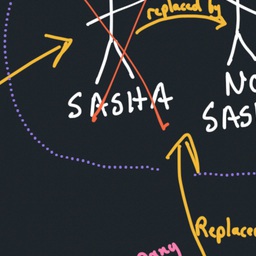 replaced by
SASHA
NO
SAS
Replace
any